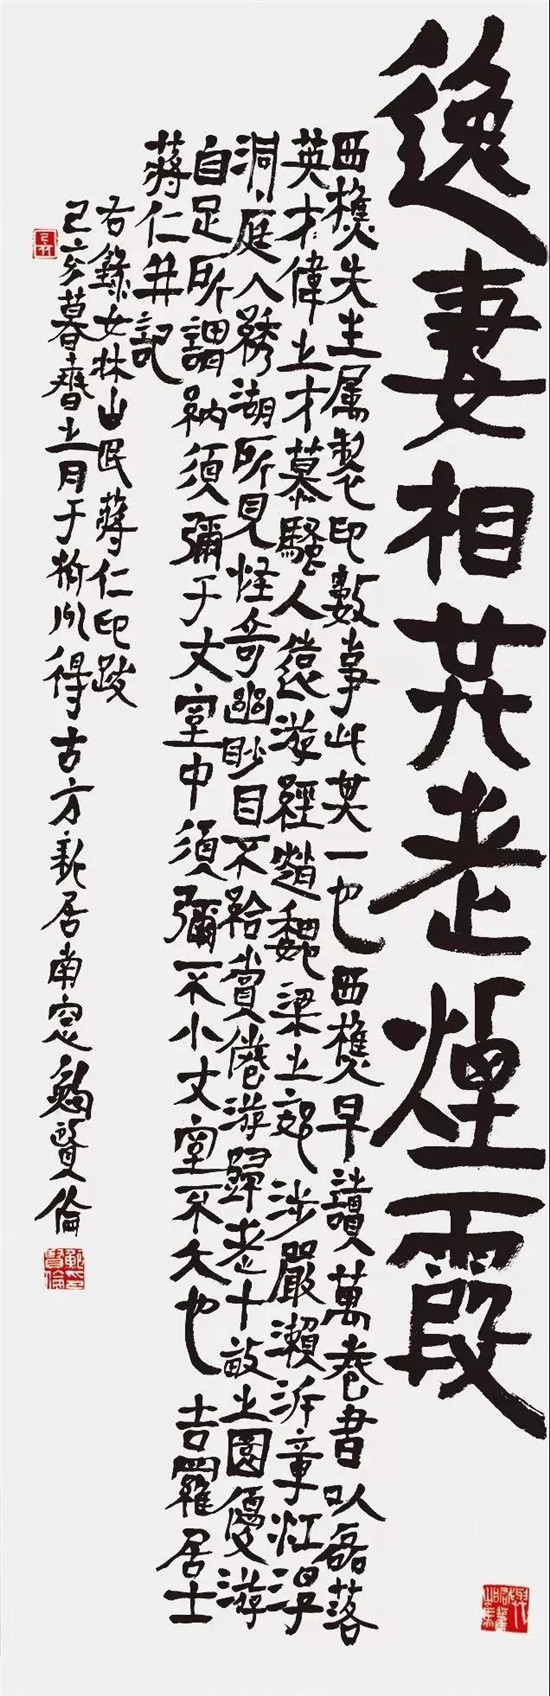 逸妻相共老煙霞
西樵先生属製印數事此其一也西樵早讀萬卷書以磊落
英才偉之才慕騷人遠游經趙魏梁之郊涉嚴瀨泝章江浮
洞庭入湖所見怪奇幽眇目不給賞倦游歸老十畝之園優游
自足所謂納須彌于丈室中須彌不小丈室不大也 吉羅居士
蔣仁并記
右錄女牀山民蔣仁印跋
己亥暮春之月于杭州得古方新居南窓鮑賢倫
鮑賢倫